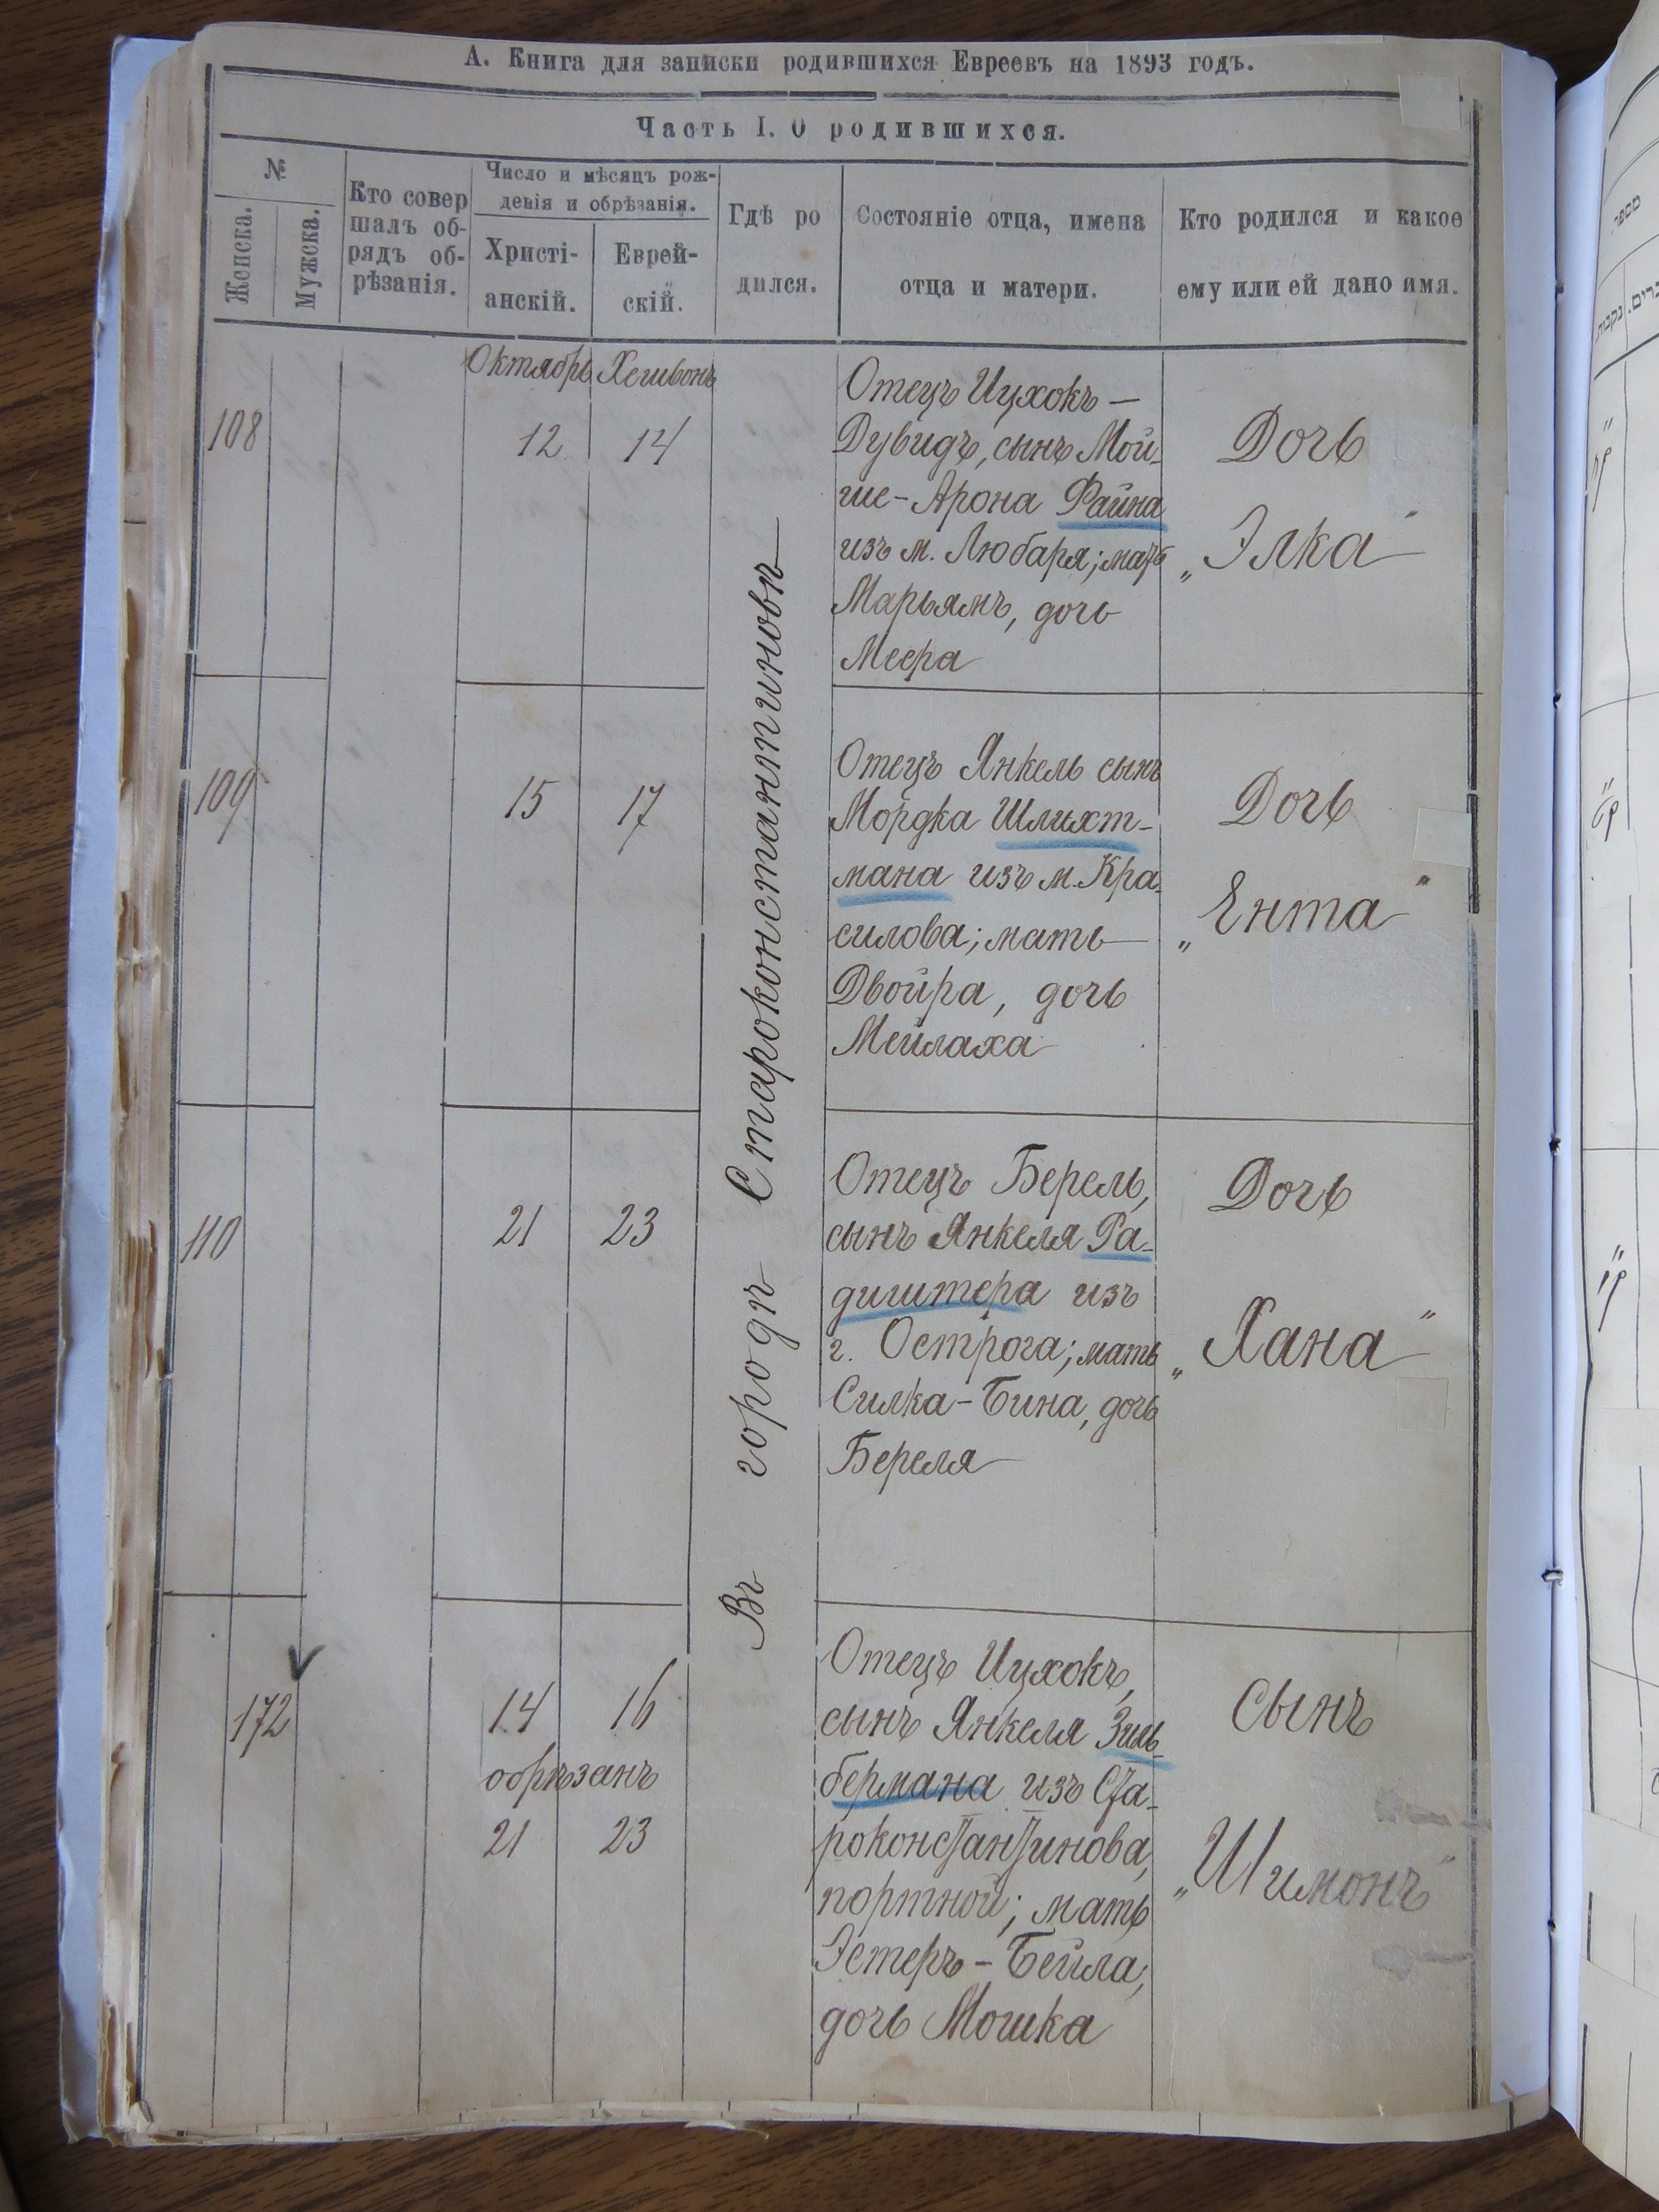 А. Книга для записки родившихся Евреевъ на 1893 годъ.
Часть I. О родившихся.
№
Женска.
Мужска.
Кто совер
шалъ об-
рядъ об-
рѣзанія.
Число и мѣсяцъ рож-
денія и обрѣзанія.
Христі-
анскій.
Еврей-
скій.
Гдѣ ро
дился.
Состояніе отца, имена
отца и матери.
Кто родился и какое
ему или ей дано имя.
Октябрь Хешвонъ
108
12
14
Отецъ Ицхокъ —
Дувидъ, сынъ Мой-
ше-Арона Файна
изъ м. Любаря; мать
Марьямъ, дочь
Меера
Дочь
„Элка"
109
15
17
Отецъ Янкель сынъ
Мордка Шлихт-
мана изъ м. Кра-
силова; мать
Двойра, дочь
Мейлаха
Дочь
„Ента"
110
21
23
Отецъ Берель,
сынъ Янкеля Ра-
дигитера изъ
г. Острога; мать
Силка-Бина, дочь
Береля
Дочь
„Хана"
172
14
16
обрѣзанъ
21
23
Отецъ Ицхокъ,
сынъ Янкеля Зиль-
бермана изъ Ста-
роконстантинова,
портной; мать
Эстеръ-Бейла,
дочь Мошка
Сынъ
„Шимонъ"
Въ городѣ Староконстантиновѣ